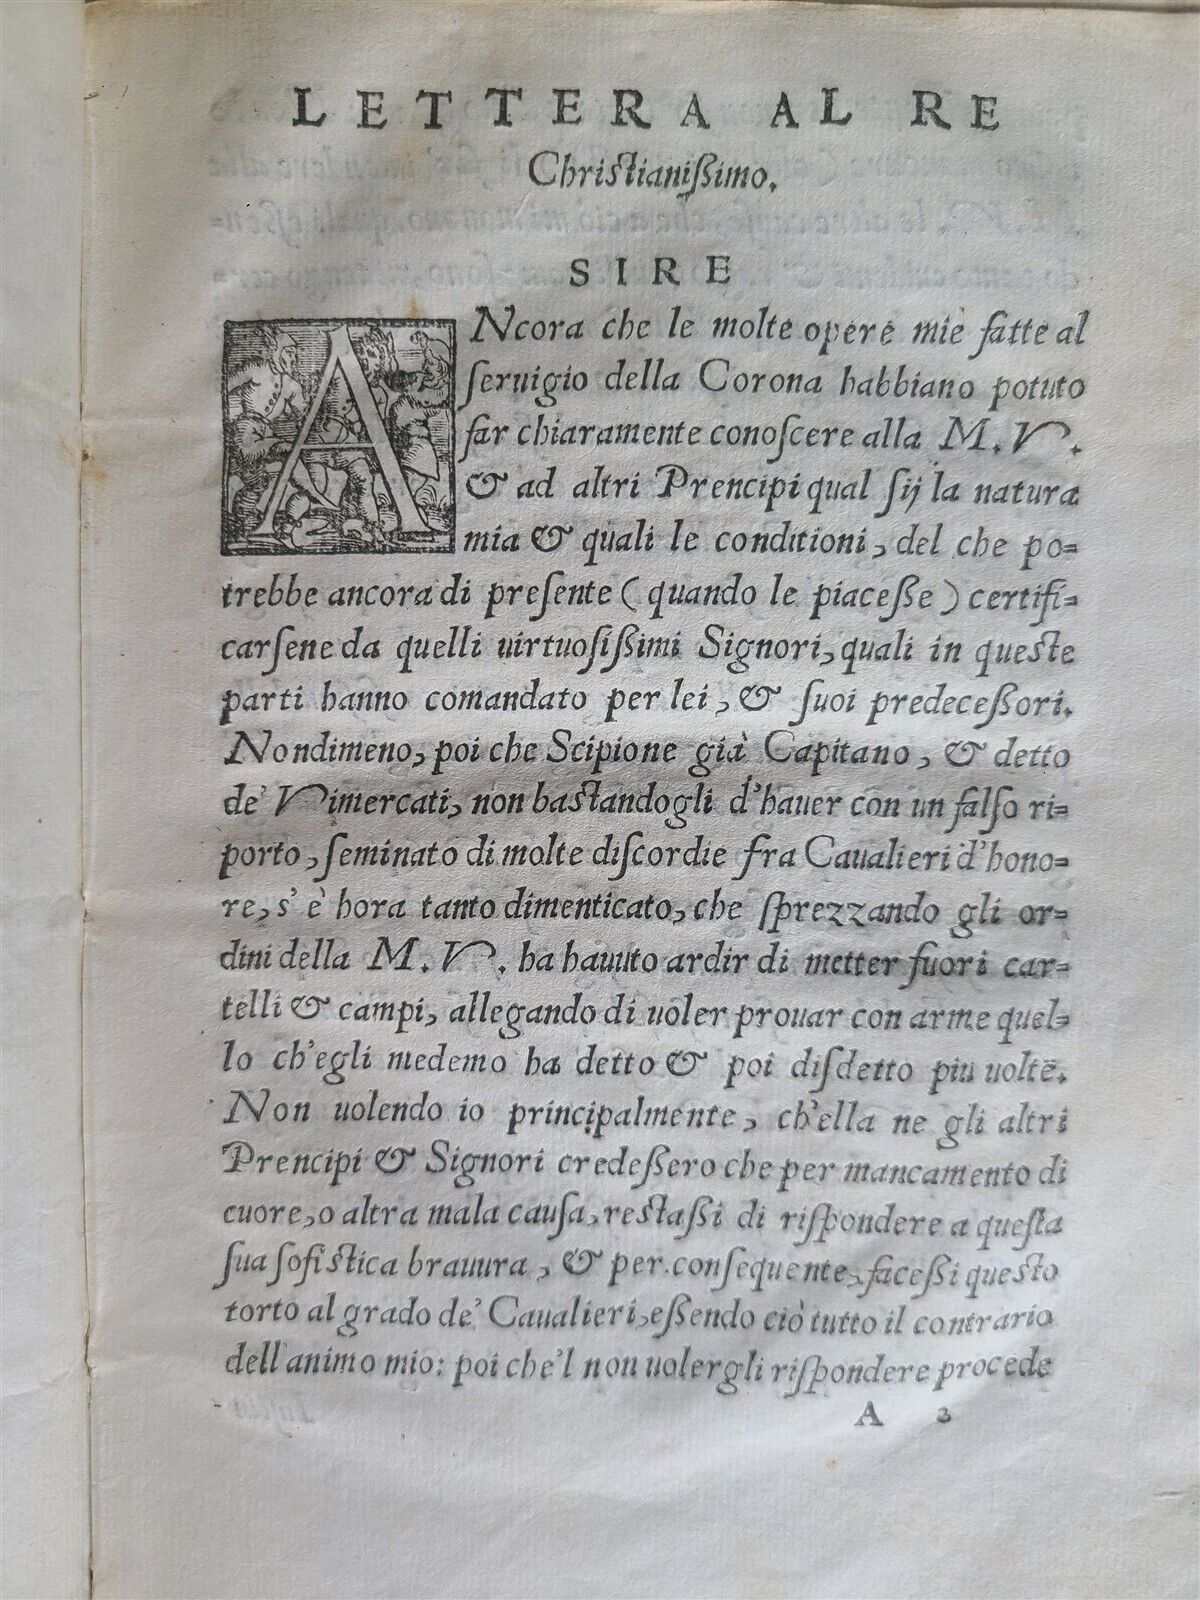 LETTERA AL RE
Christianißimo.
SIRE
ANcora che le molte opere mie fatte al
ſeruigio della Corona habbiano potuto
far chiaramente conoſcere alla M. V.
& ad altri Prencipi qual ſij la natura
mia & quali le conditioni, del che po=
trebbe ancora di preſente (quando le piaceße) certifi=
carſene da quelli uirtuoſißimi Signori, quali in queste
parti hanno comandato per lei, & ſuoi predeceßori.
Nondimeno, poi che Scipione già Capitano, & detto
de' Vimercati, non bastandogli d'hauer con un falſo ri=
porto, ſeminato di molte diſcordie fra Caualieri d'hono=
re, s'è hora tanto dimenticato, che ſprezzando gli or=
dini della M. V. ha hauuto ardir di metter fuori car=
telli & campi, allegando di uoler prouar con arme quel=
lo ch'egli medemo ha detto & poi diſdetto piu uolte.
Non uolendo io principalmente, ch'ella ne gli altri
Prencipi & Signori credeßero che per mancamento di
cuore, o altra mala cauſa, restaßi di riſpondere a questa
ſua ſofistica brauura, & per conſequente, faceßi questo
torto al grado de' Caualieri, eßendo ciò tutto il contrario
dell'animo mio: poi che'l non uolergli riſpondere procede
A 3